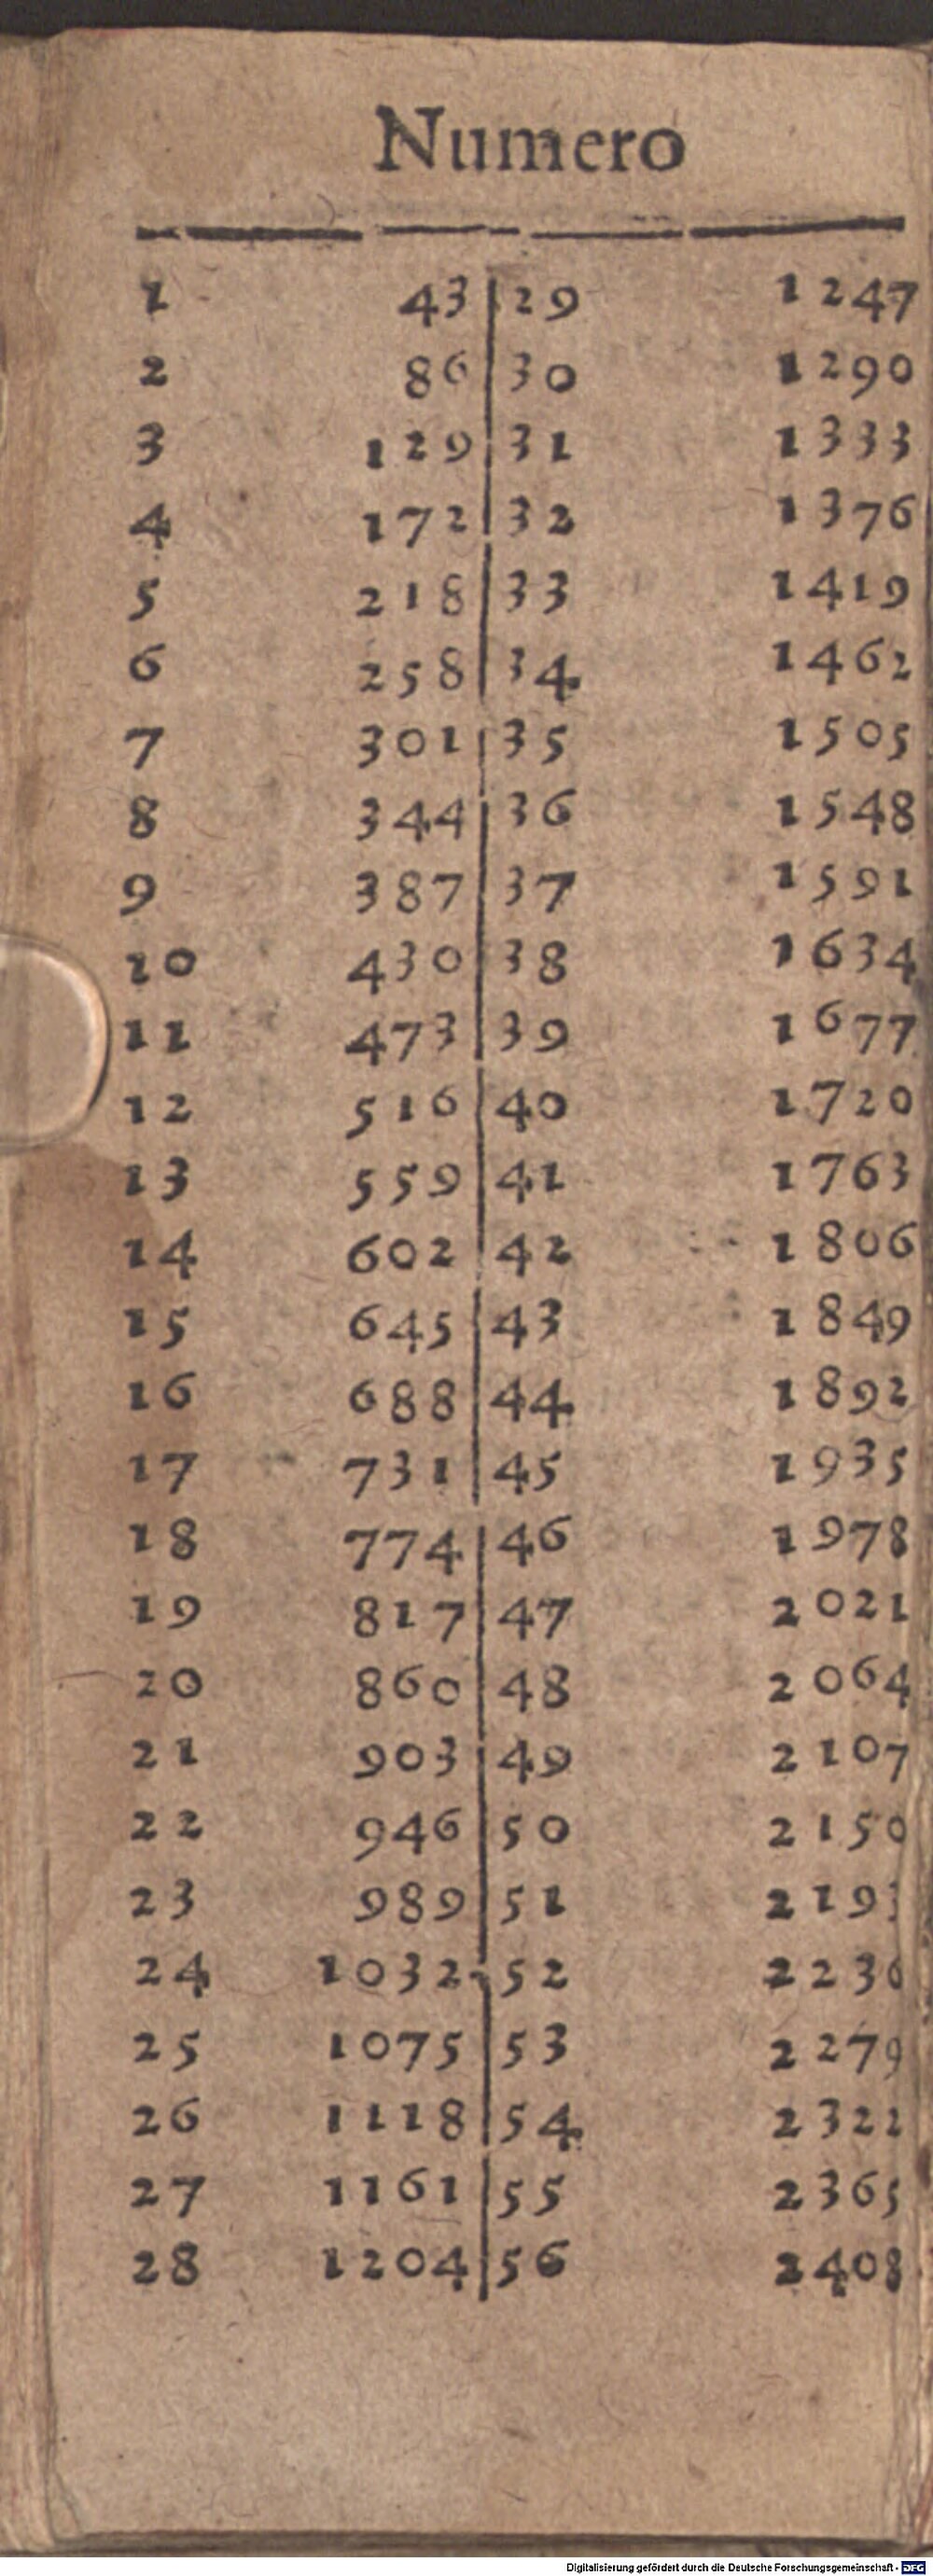 Numero
1 43 29 1247
2 86 30 1290
3 129 31 1333
4 172 32 1376
5 218 33 1419
6 258 34 1462
7 301 35 1505
8 344 36 1548
9 387 37 1591
10 430 38 1634
11 473 39 1677
12 516 40 1720
13 559 41 1763
14 602 42 1806
15 645 43 1849
16 688 44 1892
17 731 45 1935
18 774 46 1978
19 817 47 2021
20 860 48 2064
21 903 49 2107
22 946 50 2150
23 989 51 2193
24 1032 52 2236
25 1075 53 2279
26 1118 54 2322
27 1161 55 2365
28 1204 56 2408
Digitalisierung gefördert durch die Deutsche Forschungsgemeinschaft - DFG